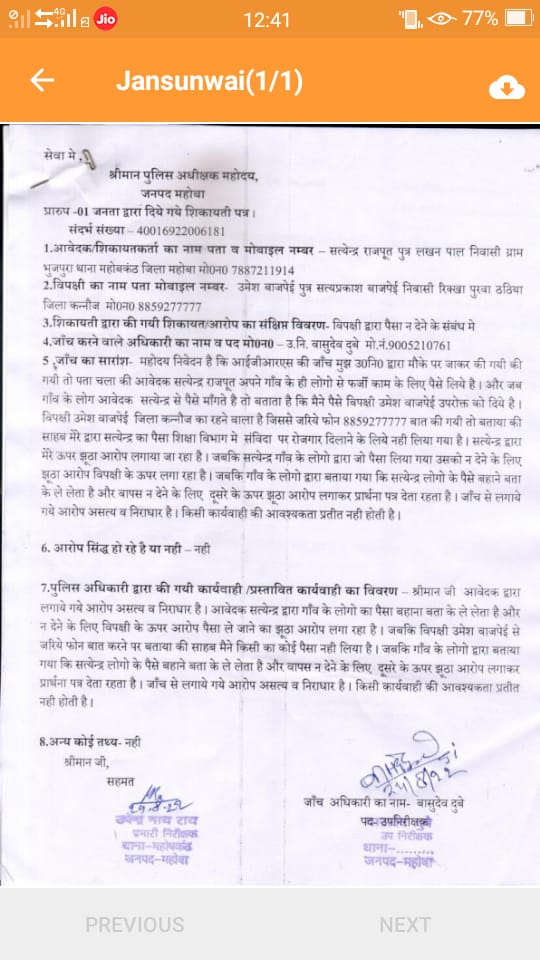 4G
Jio
12:41
77%
Jansunwai(1/1)
सेवा मे ,
श्रीमान पुलिस अधीक्षक महोदय,
जनपद महोबा
प्रारुप -01 जनता द्वारा दिये गये शिकायती पत्र।
संदर्भ संख्या – 40016922006181
1.आवेदक/शिकायतकर्ता का नाम पता व मोबाइल नम्बर – सत्येन्द्र राजपूत पुत्र लखन पाल निवासी ग्राम
भुजपुरा थाना महोबकंठ जिला महोबा मो0न0 7887211914
2.विपक्षी का नाम पता मोबाइल नम्बर- उमेश बाजपेई पुत्र सत्यप्रकाश बाजपेई निवासी रिक्खा पुरवा ठठिया
जिला कन्नौज मो0न0 8859277777
3.शिकायती द्वारा की गयी शिकायत/आरोप का संक्षिप्त विवरण- विपक्षी द्वारा पैसा न देने के संबंध मे
4.जाँच करने वाले अधिकारी का नाम व पद मो0न0 – उ.नि. वासुदेव दुबे मो.नं.9005210761
5 .जाँच का सारांश- महोदय निवेदन है कि आईजीआरएस की जाँच मुझ उ0नि0 द्वारा मौके पर जाकर की गयी की
गयी तो पता चला की आवेदक सत्येन्द्र राजपूत अपने गाँव के ही लोगो से फर्जी काम के लिए पैसे लिये है। और जब
गाँव के लोग आवेदक सत्येन्द्र से पैसे माँगते है तो बताता है कि मैने पैसे विपक्षी उमेश वाजपेई उपरोक्त को दिये है।
विपक्षी उमेश वाजपेई जिला कन्नौज का रहने वाला है जिससे जरिये फोन 8859277777 बात की गयी तो बताया की
साहब मेरे द्वारा सत्येन्द्र का पैसा शिक्षा विभाग मे संविदा पर रोजगार दिलाने के लिये नही लिया गया है। सत्येन्द्र द्वारा
मेरे ऊपर झूठा आरोप लगाया जा रहा है। जबकि सत्येन्द्र गाँव के लोगो द्वारा जो पैसा लिया गया उसको न देने के लिए
झूठा आरोप विपक्षी के ऊपर लगा रहा है। जबकि गाँव के लोगो द्वारा बताया गया कि सत्येन्द्र लोगो के पैसे बहाने बता
के ले लेता है और वापस न देने के लिए दूसरे के ऊपर झूठा आरोप लगाकर प्रार्थना पत्र देता रहता है। जाँच से लगाये
गये आरोप असत्य व निराधार है। किसी कार्यवाही की आवश्यकता प्रतीत नही होती है।
6. आरोप सिद्ध हो रहे है या नही – नही
7.पुलिस अधिकारी द्वारा की गयी कार्यवाही /प्रस्तावित कार्यवाही का विवरण – श्रीमान जी आवेदक द्वारा
लगाये गये आरोप असत्य व निराधार है। आवेदक सत्येन्द्र द्वारा गाँव के लोगो का पैसा बहाना बता के ले लेता है और
न देने के लिए विपक्षी के ऊपर आरोप पैसा ले जाने का झूठा आरोप लगा रहा है। जबकि विपक्षी उमेश बाजपेई से
जरिये फोन बात करने पर बताया की साहब मैने किसी का कोई पैसा नही लिया है। जबकि गाँव के लोगो द्वारा बताया
गया कि सत्येन्द्र लोगो के पैसे बहाने बता के ले लेता है और वापस न देने के लिए दूसरे के ऊपर झूठा आरोप लगाकर
प्रार्थना पत्र देता रहता है। जाँच से लगाये गये आरोप असत्य व निराधार है। किसी कार्यवाही की आवश्यकता प्रतीत
नही होती है।
8.अन्य कोई तथ्य- नही
श्रीमान जी,
सहमत
29.8.22
उपेन्द्र नाथ राय
प्रभारी निरीक्षक
थाना-महोबकंठ
जनपद-महोबा
24/8/22
जाँच अधिकारी का नाम- बासुदेव दुबे
पद- उपनिरीक्षक
उप निरीक्षक
थाना-.........
जनपद-महोबा
PREVIOUS
NEXT